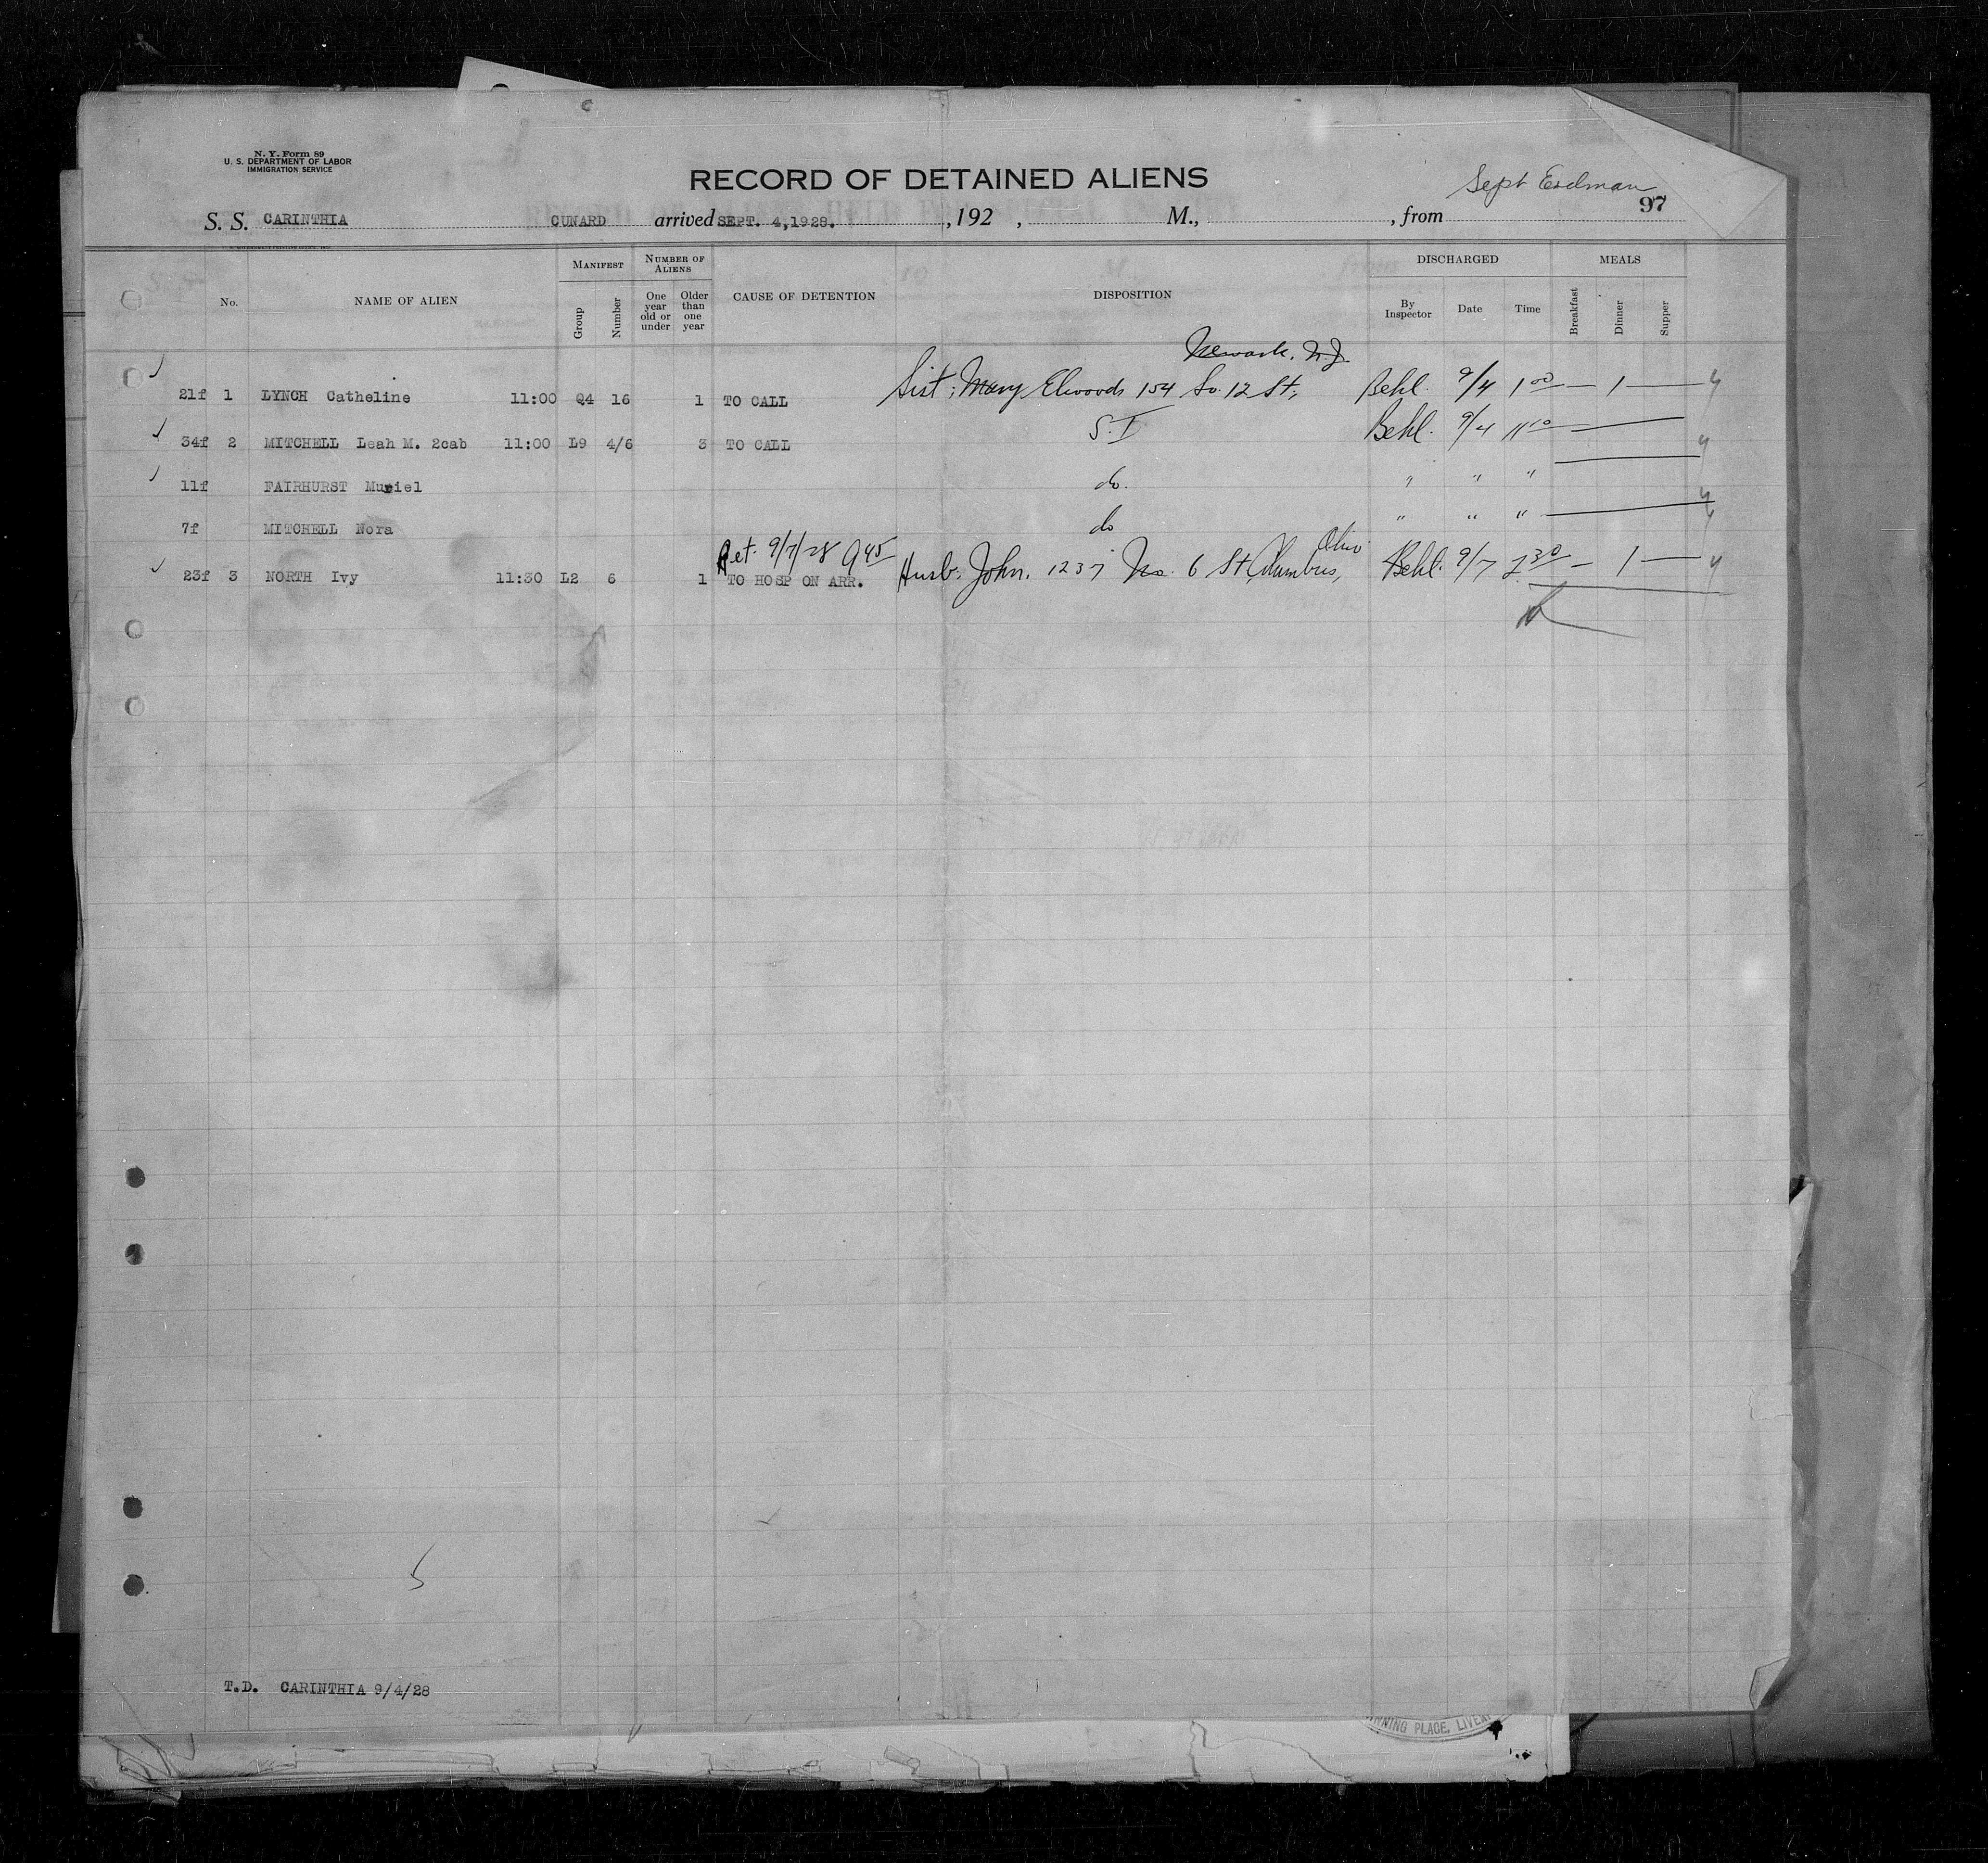 N. Y. Form 89
U. S. DEPARTMENT OF LABOR
IMMIGRATION SERVICE
RECORD OF DETAINED ALIENS
Sept
97
S. S. CARINTHIA CUNARD arrived SEPT. 4,1928. , 192 , M., , from
No. NAME OF ALIEN MANIFEST Group Number NUMBER OF ALIENS One year old or under Older than one year CAUSE OF DETENTION DISPOSITION DISCHARGED By Inspector Date Time MEALS Breakfast Dinner Supper
Newark, N.J.
21f 1 LYNCH Catheline 11:00 Q4 16 1 TO CALL Sist: Mary Elwoods 154 So. 12 St, Behl. 9/4 1 00 — 1 —
34f 2 MITCHELL Leah M. 2cab 11:00 L9 4/6 3 TO CALL S.I Behl. 9/4 11 10 —
11f FAIRHURST Muriel do. " " "
7f MITCHELL Nora do " " "
Ret. 9/7/28 9 45 Ohio
23f 3 NORTH Ivy 11:30 L2 6 1 TO HOSP ON ARR. Husb: John, 1237 No. 6 St, Columbus, Behl. 9/7 2 30 — 1 —
T.D. CARINTHIA 9/4/28
NNING PLACE, LIVER